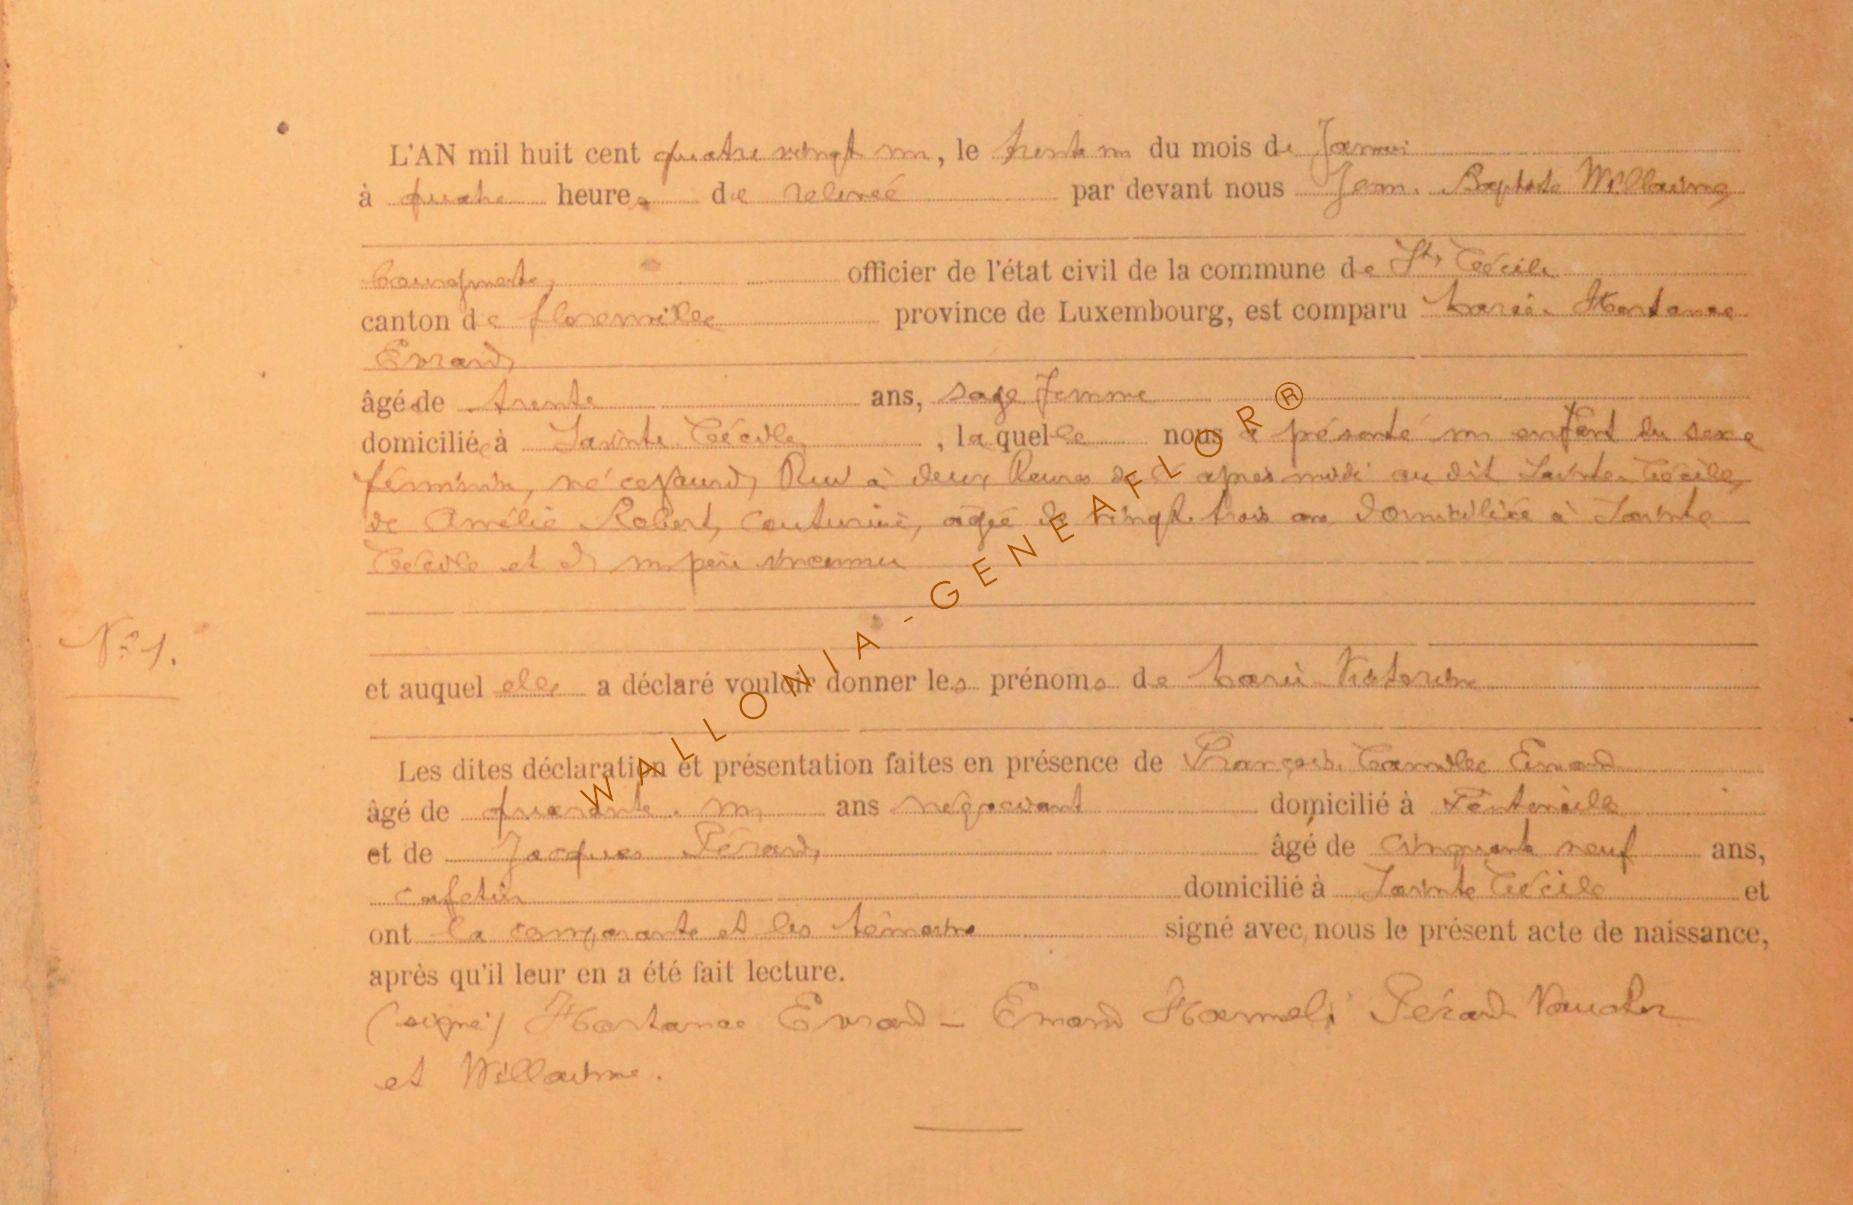 L'AN mil huit cent quatre vingt un, le trente un du mois de Janvier
à quatre heures de relevée par devant nous Jean Baptiste Willaime
Bourgmestre, officier de l'état civil de la commune de Ste Cécile
canton de florenville province de Luxembourg, est comparu Marie Hortance
Evrard,
âgée de trente ans, sage femme
domiciliée à Sainte Cécile, laquelle nous a présenté un enfant du sexe
féminin, né cejourd'hui à deux heures de l'apres midi au dit Sainte Cécile,
de Amélie Robert, couturière, agée de vingt trois ans domiciliée à Sainte
Cécile et de un père inconnu
N° 1.
et auquel elle a déclaré vouloir donner les prénoms de Marie Victorine
Les dites déclaration et présentation faites en présence de François Camille
âgé de quarante un ans négociant domicilié à
et de Jacques Pérard, âgé de cinquante neuf ans,
cafetier domicilié à Sainte Cécile et
ont la comparante et les témoins signé avec nous le présent acte de naissance,
après qu'il leur en a été fait lecture.
(signé) Hortance Evrard – Pérard
et Willaime.
WALLONIA - GENEAFLOR®